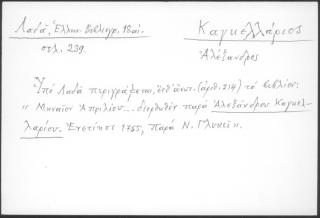 Λαδᾶ, Ἑλλην. Βιβλιογρ. 18 αἰ.
σελ. 239.
Καγκελλάριος
Ἀλέξανδρος
Ὑπὸ Λαδᾶ περιγράφεται, ἔνθ' ἀνωτ. (ἀριθ. 214) τὸ βιβλίον:
" Μηναῖον Ἀπριλίου... διορθωθὲν παρὰ Ἀλεξάνδρου Καγκελ-
λαρίου. Ἐνετίησι 1765, παρὰ Ν. Γλυκεῖ ".